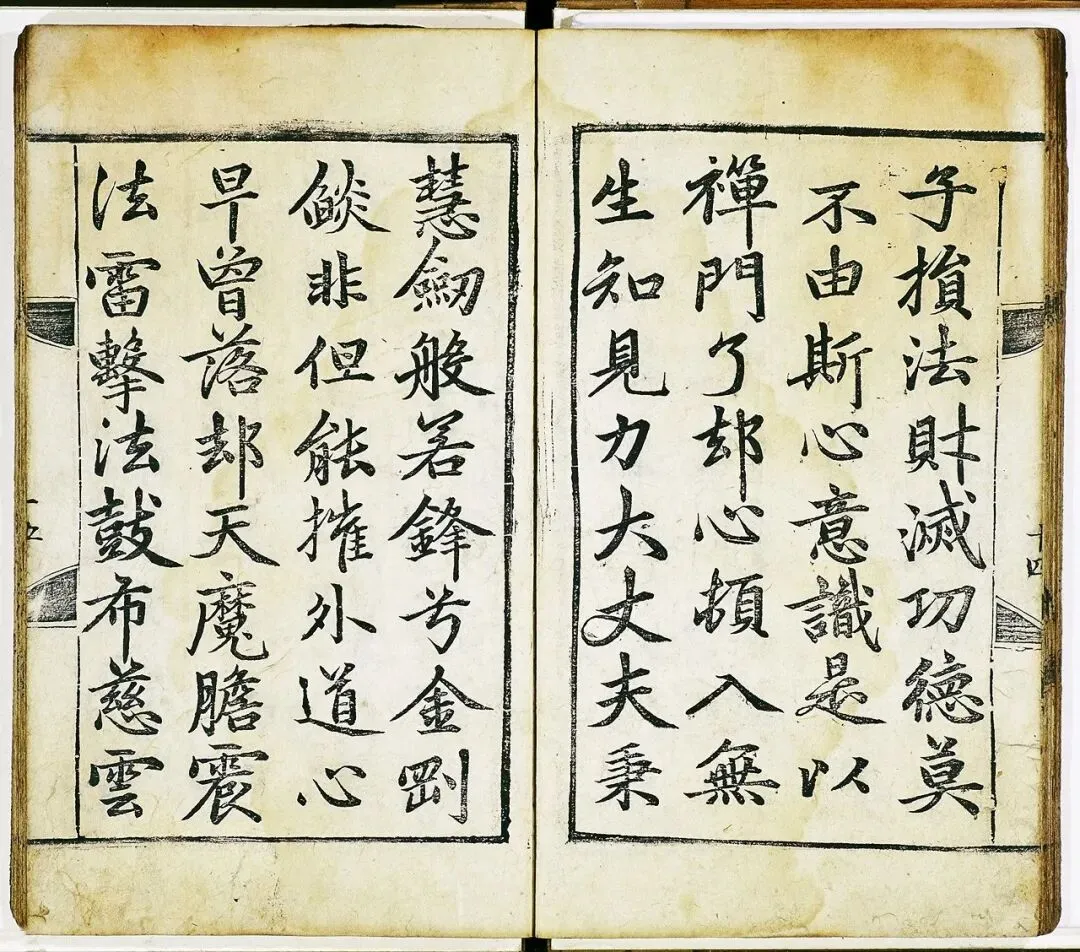 十四
子損法財滅功德莫
不由斯心意識是以
禪門了却心頓入無
生知見力大丈夫秉
慧劔般若鋒兮金剛
燄非但能摧外道心
早曾落却天魔膽震
法雷擊法鼓布慈雲
十五